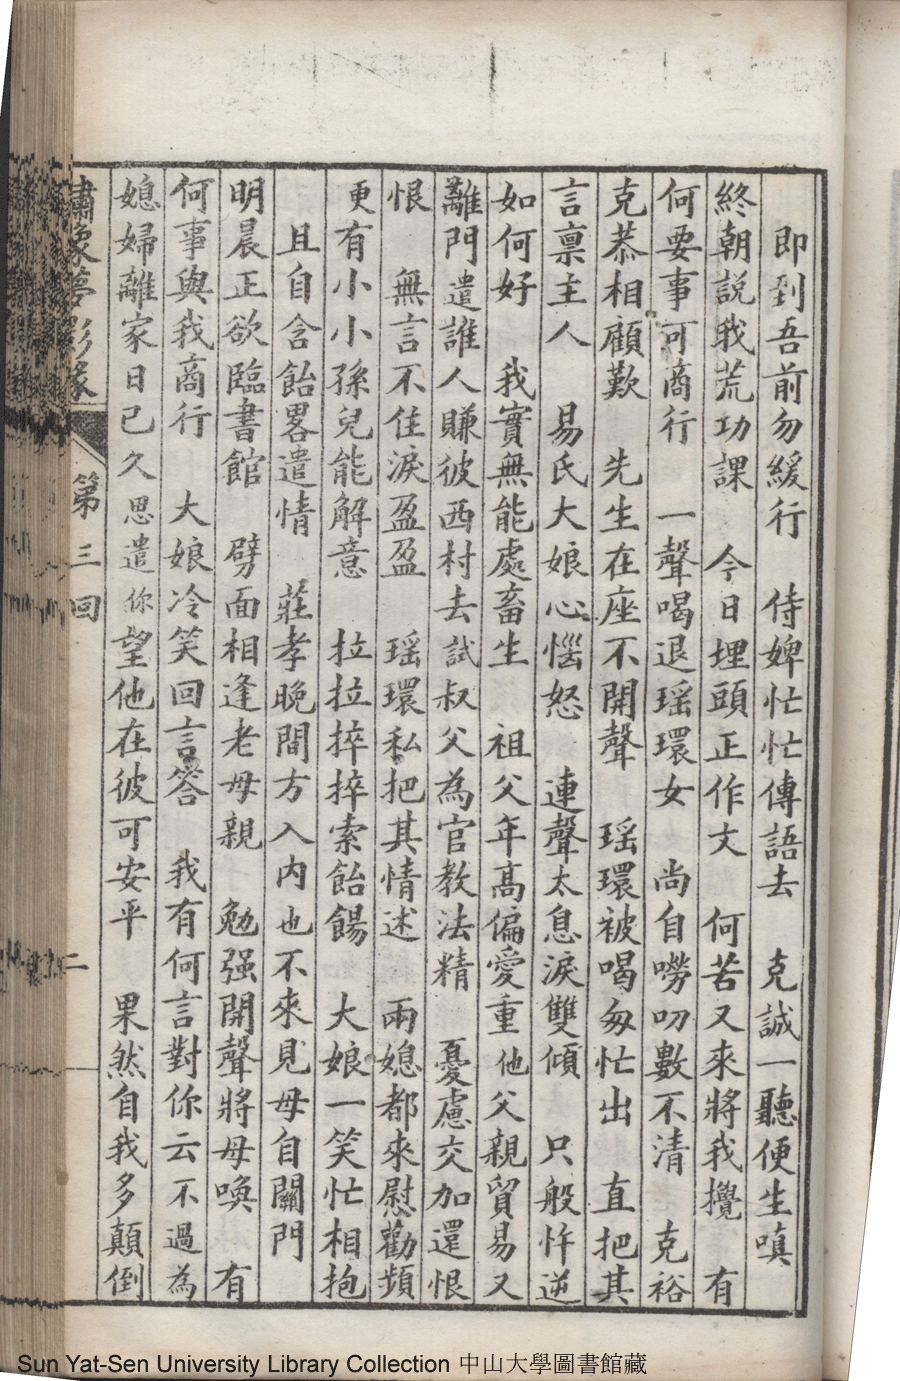 即到吾前勿緩行　侍婢忙忙傳語去　克誠一聽便生嗔
終朝説我荒功課　今日埋頭正作文　何苦又來將我攪　有
何要事可商行　一聲喝退瑶環女　尚自嘮叨數不清　克裕
克恭相顧歎　先生在座不開聲　瑶環被喝匆忙出　直把其
言禀主人　易氏大娘心惱怒　連聲太息淚雙傾　只般忤逆
如何好　我實無能處畜生　祖父年高偏愛重　他父親貿易又
離門遣誰人賺彼西村去試叔父為官教法精　憂慮交加還恨
恨　無言不住淚盈盈　瑶環私把其情述　兩媳都來慰勸頻
更有小小孫兒能解意　拉拉捽捽索飴餳　大娘一笑忙相抱
且自含飴畧遣情　莊孝晚間方入内也不來見母自關門
明晨正欲臨書館　劈面相逢老母親　勉强開聲將母喚　有
何事與我商行　大娘冷笑回言答　我有何言對你云不過為
媳婦離家日已久思遣你望他在彼可安平　果然自我多顛倒
繡像夢影緣　第三回　二
Sun Yat-Sen University Library Collection 中山大學圖書館藏